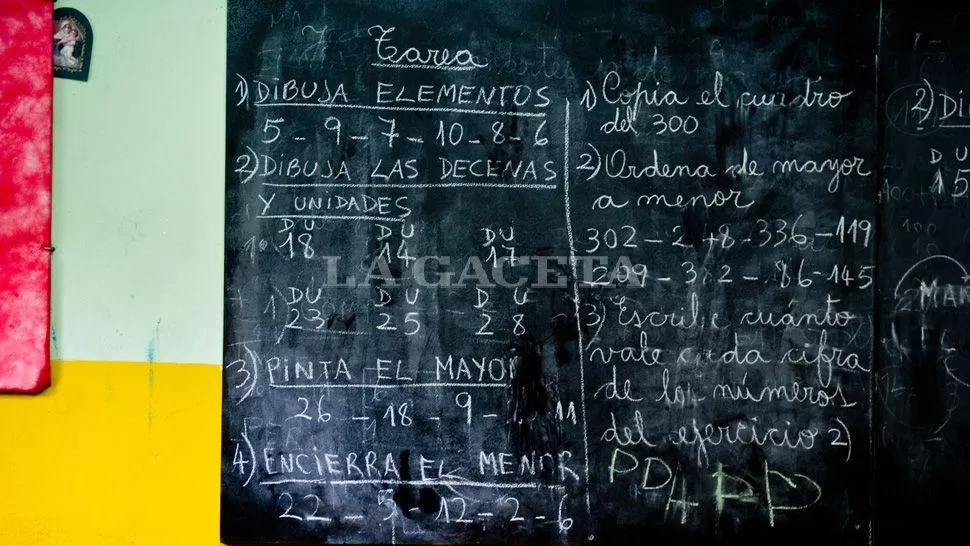 Tarea
1) DIBUJA ELEMENTOS
5 - 9 - 7 - 10 - 8 - 6
2) DIBUJA LAS DECENAS
Y UNIDADES
DU DU DU
18 14 17
DU DU D U
23 25 2 8
3) PINTA EL MAYOR
26 - 18 - 9 - 11
4) ENCIERRA EL MENOR
22 - 5 - 12 - 2 - 6
1) Copia el cuadro
del 300
2) Ordena de mayor
a menor
302 - 336 - 119
209 - 145
3) Escribe cuánto
vale cada cifra
de los números
del ejercicio 2)
2) DI
D U
15
MAN
LA GACETA